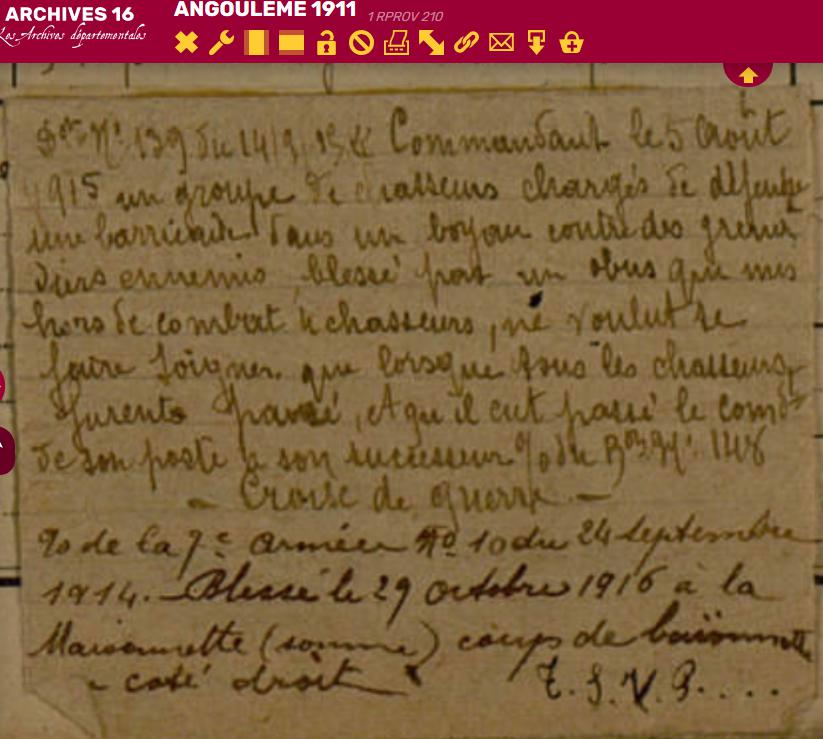 ARCHIVES 16
Les Archives départementales
ANGOULEME 1911
1 RPROV 210
N° 139 du 14/9/15 Commandant le 5 Août
1915 un groupe de chasseurs chargés de défendre
une barricade dans un boyau contre des grena
diers ennemis, blessé par un obus qui mis
hors de combat 4 chasseurs, ne voulut se
faire soigner que lorsque tous les chasseurs
furent pansé, et qu'il eut passé le comdt
de son poste à son successeur % du N° 148
- Croise de guerre -
% de la 7e armée No 10 du 24 septembre
1914. - Blessé le 29 octobre 1916 à la
Maisonnette (somme) coups de baïonnette
- coté droit
T.S.V.P....